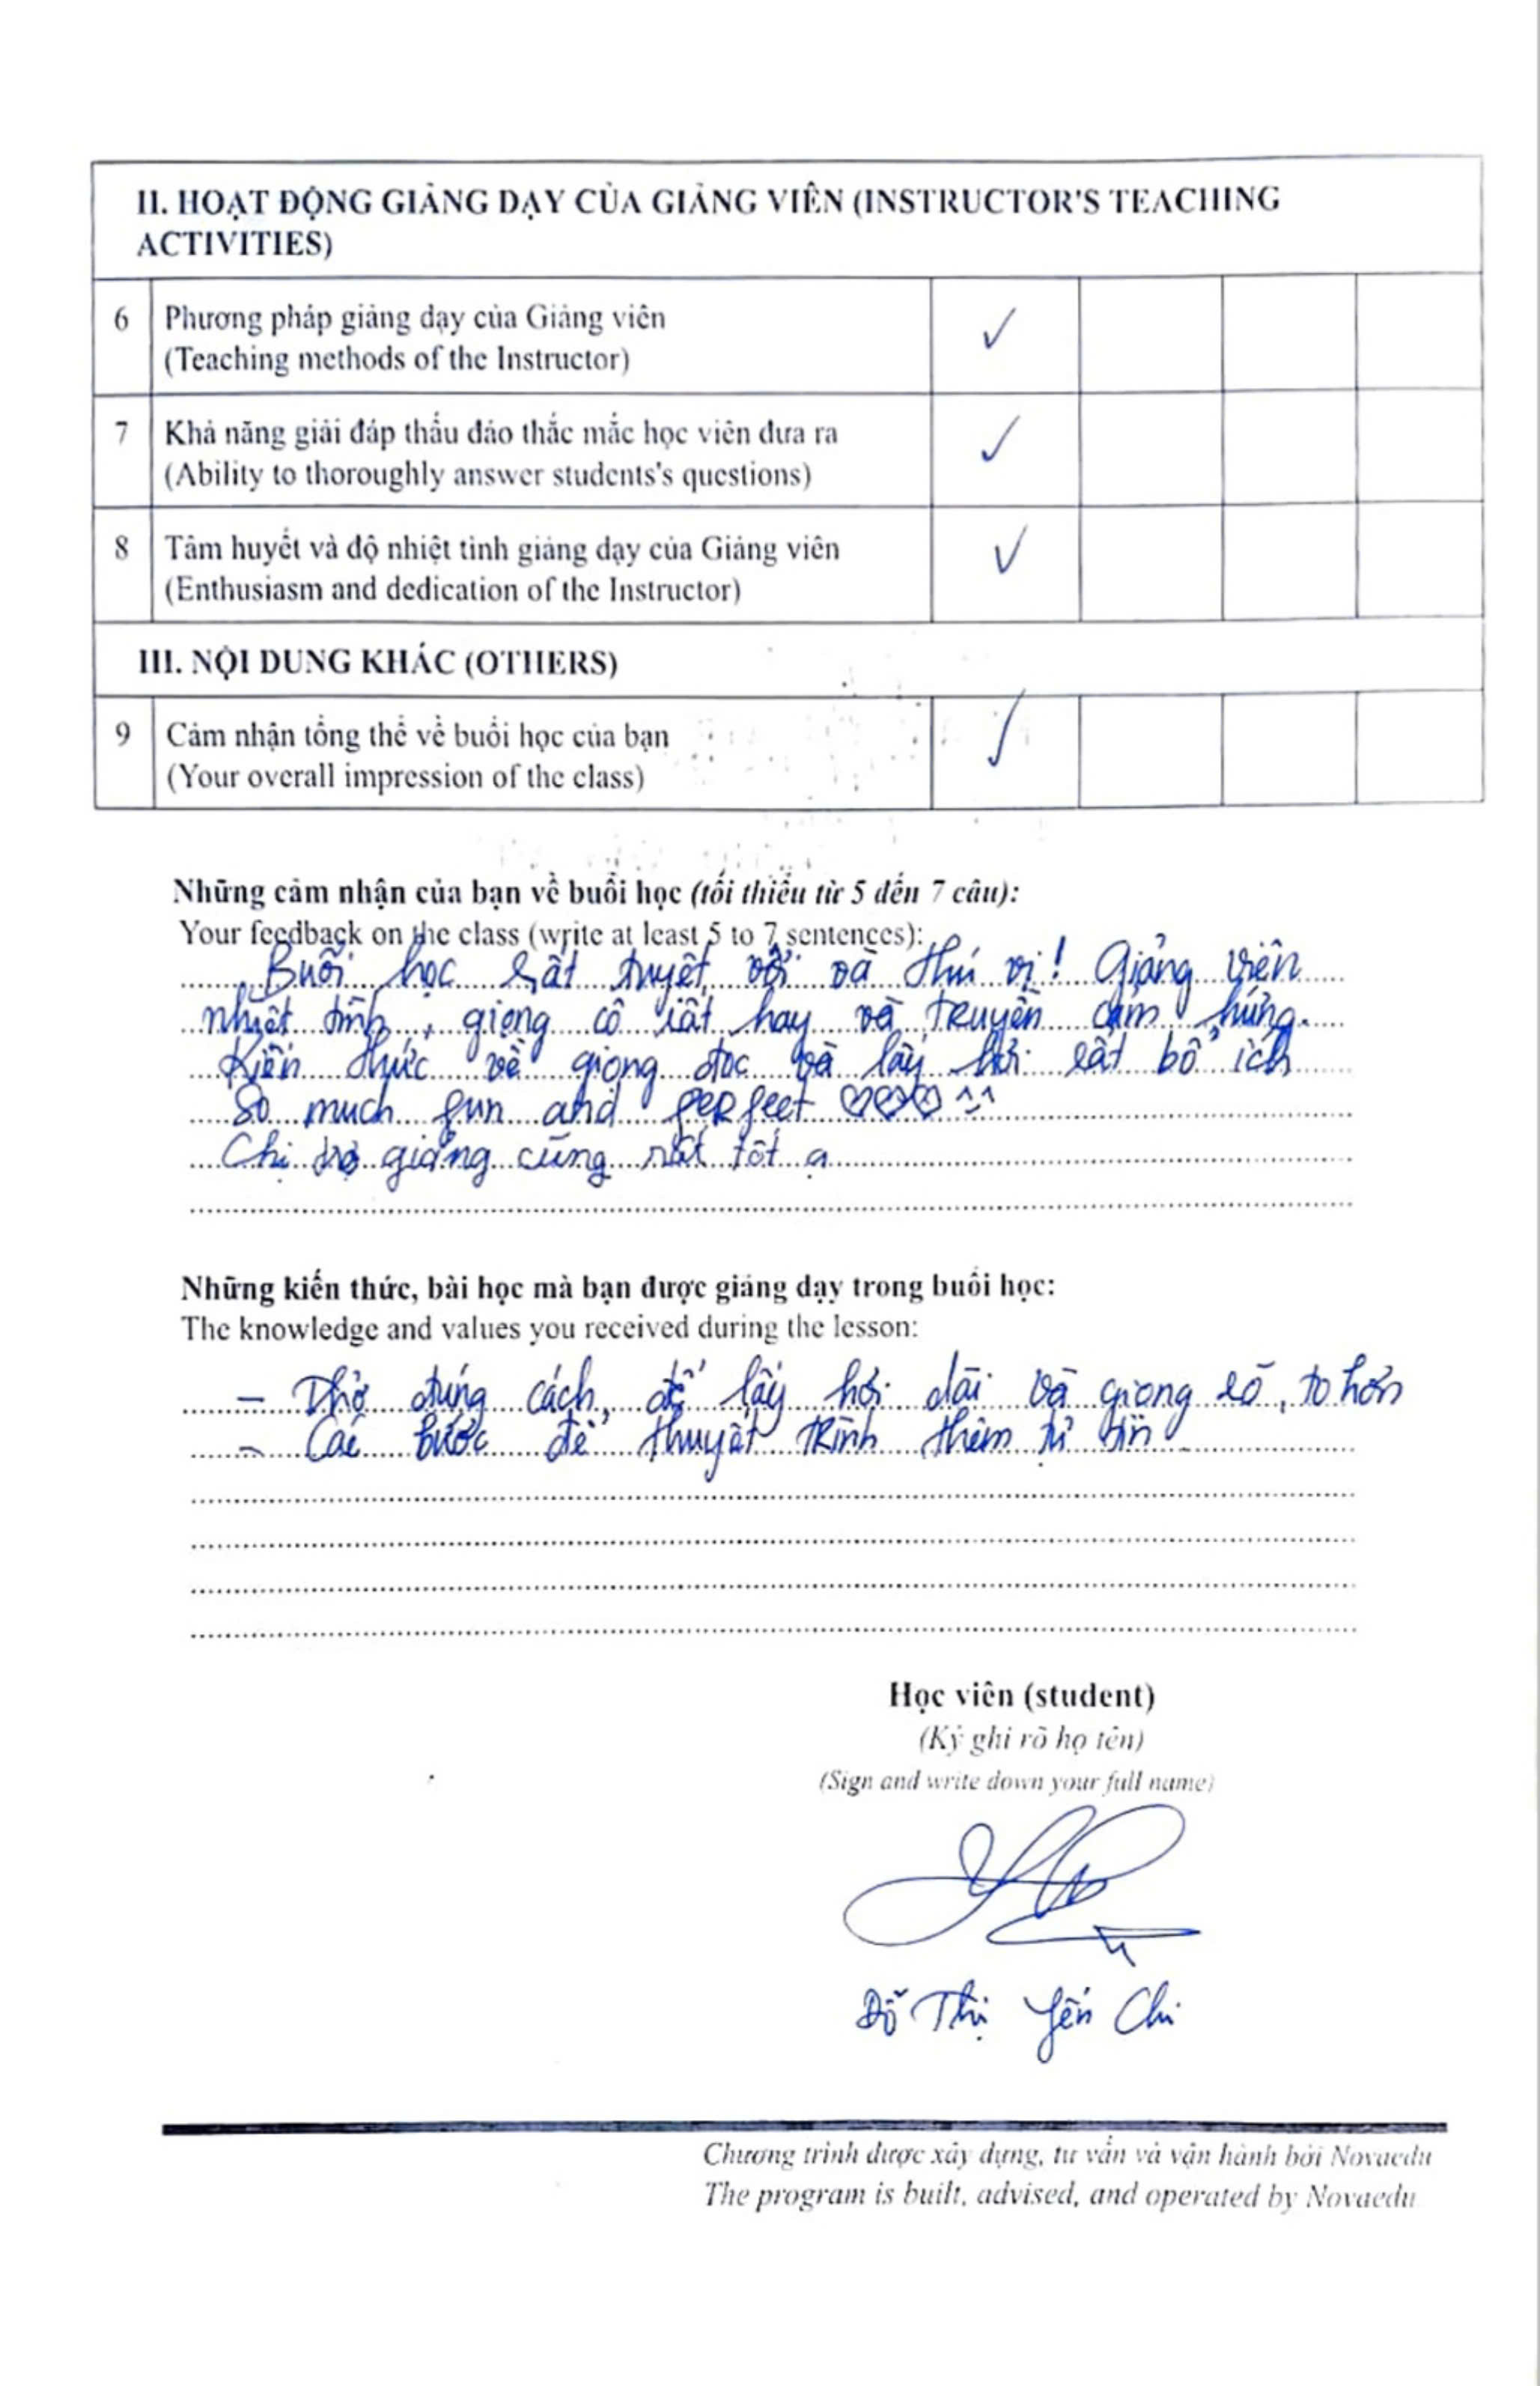 II. HOẠT ĐỘNG GIẢNG DẠY CỦA GIẢNG VIÊN (INSTRUCTOR'S TEACHING
ACTIVITIES)
6 Phương pháp giảng dạy của Giảng viên ✓
(Teaching methods of the Instructor)
7 Khả năng giải đáp thấu đáo thắc mắc học viên đưa ra ✓
(Ability to thoroughly answer students's questions)
8 Tâm huyết và độ nhiệt tình giảng dạy của Giảng viên ✓
(Enthusiasm and dedication of the Instructor)
III. NỘI DUNG KHÁC (OTHERS)
9 Cảm nhận tổng thể về buổi học của bạn ✓
(Your overall impression of the class)
Những cảm nhận của bạn về buổi học (tối thiểu từ 5 đến 7 câu):
Your feedback on the class (write at least 5 to 7 sentences):
Buổi học rất tuyệt vời và thú vị! Giảng viên
nhiệt tình, giọng cô rất hay và truyền cảm hứng.
Kiến thức về giọng đọc và lấy hơi rất bổ ích
So much fun and perfect ♡♡♡ ^^
Chị trợ giảng cũng rất tốt ạ
Những kiến thức, bài học mà bạn được giảng dạy trong buổi học:
The knowledge and values you received during the lesson:
- Thở đúng cách, để lấy hơi dài và giọng rõ, to hơn
- Các bước để thuyết trình thêm tự tin
Học viên (student)
(Ký ghi rõ họ tên)
(Sign and write down your full name)
Đỗ Thị Yến Chi
Chương trình được xây dựng, tư vấn và vận hành bởi Novaedu
The program is built, advised, and operated by Novaedu